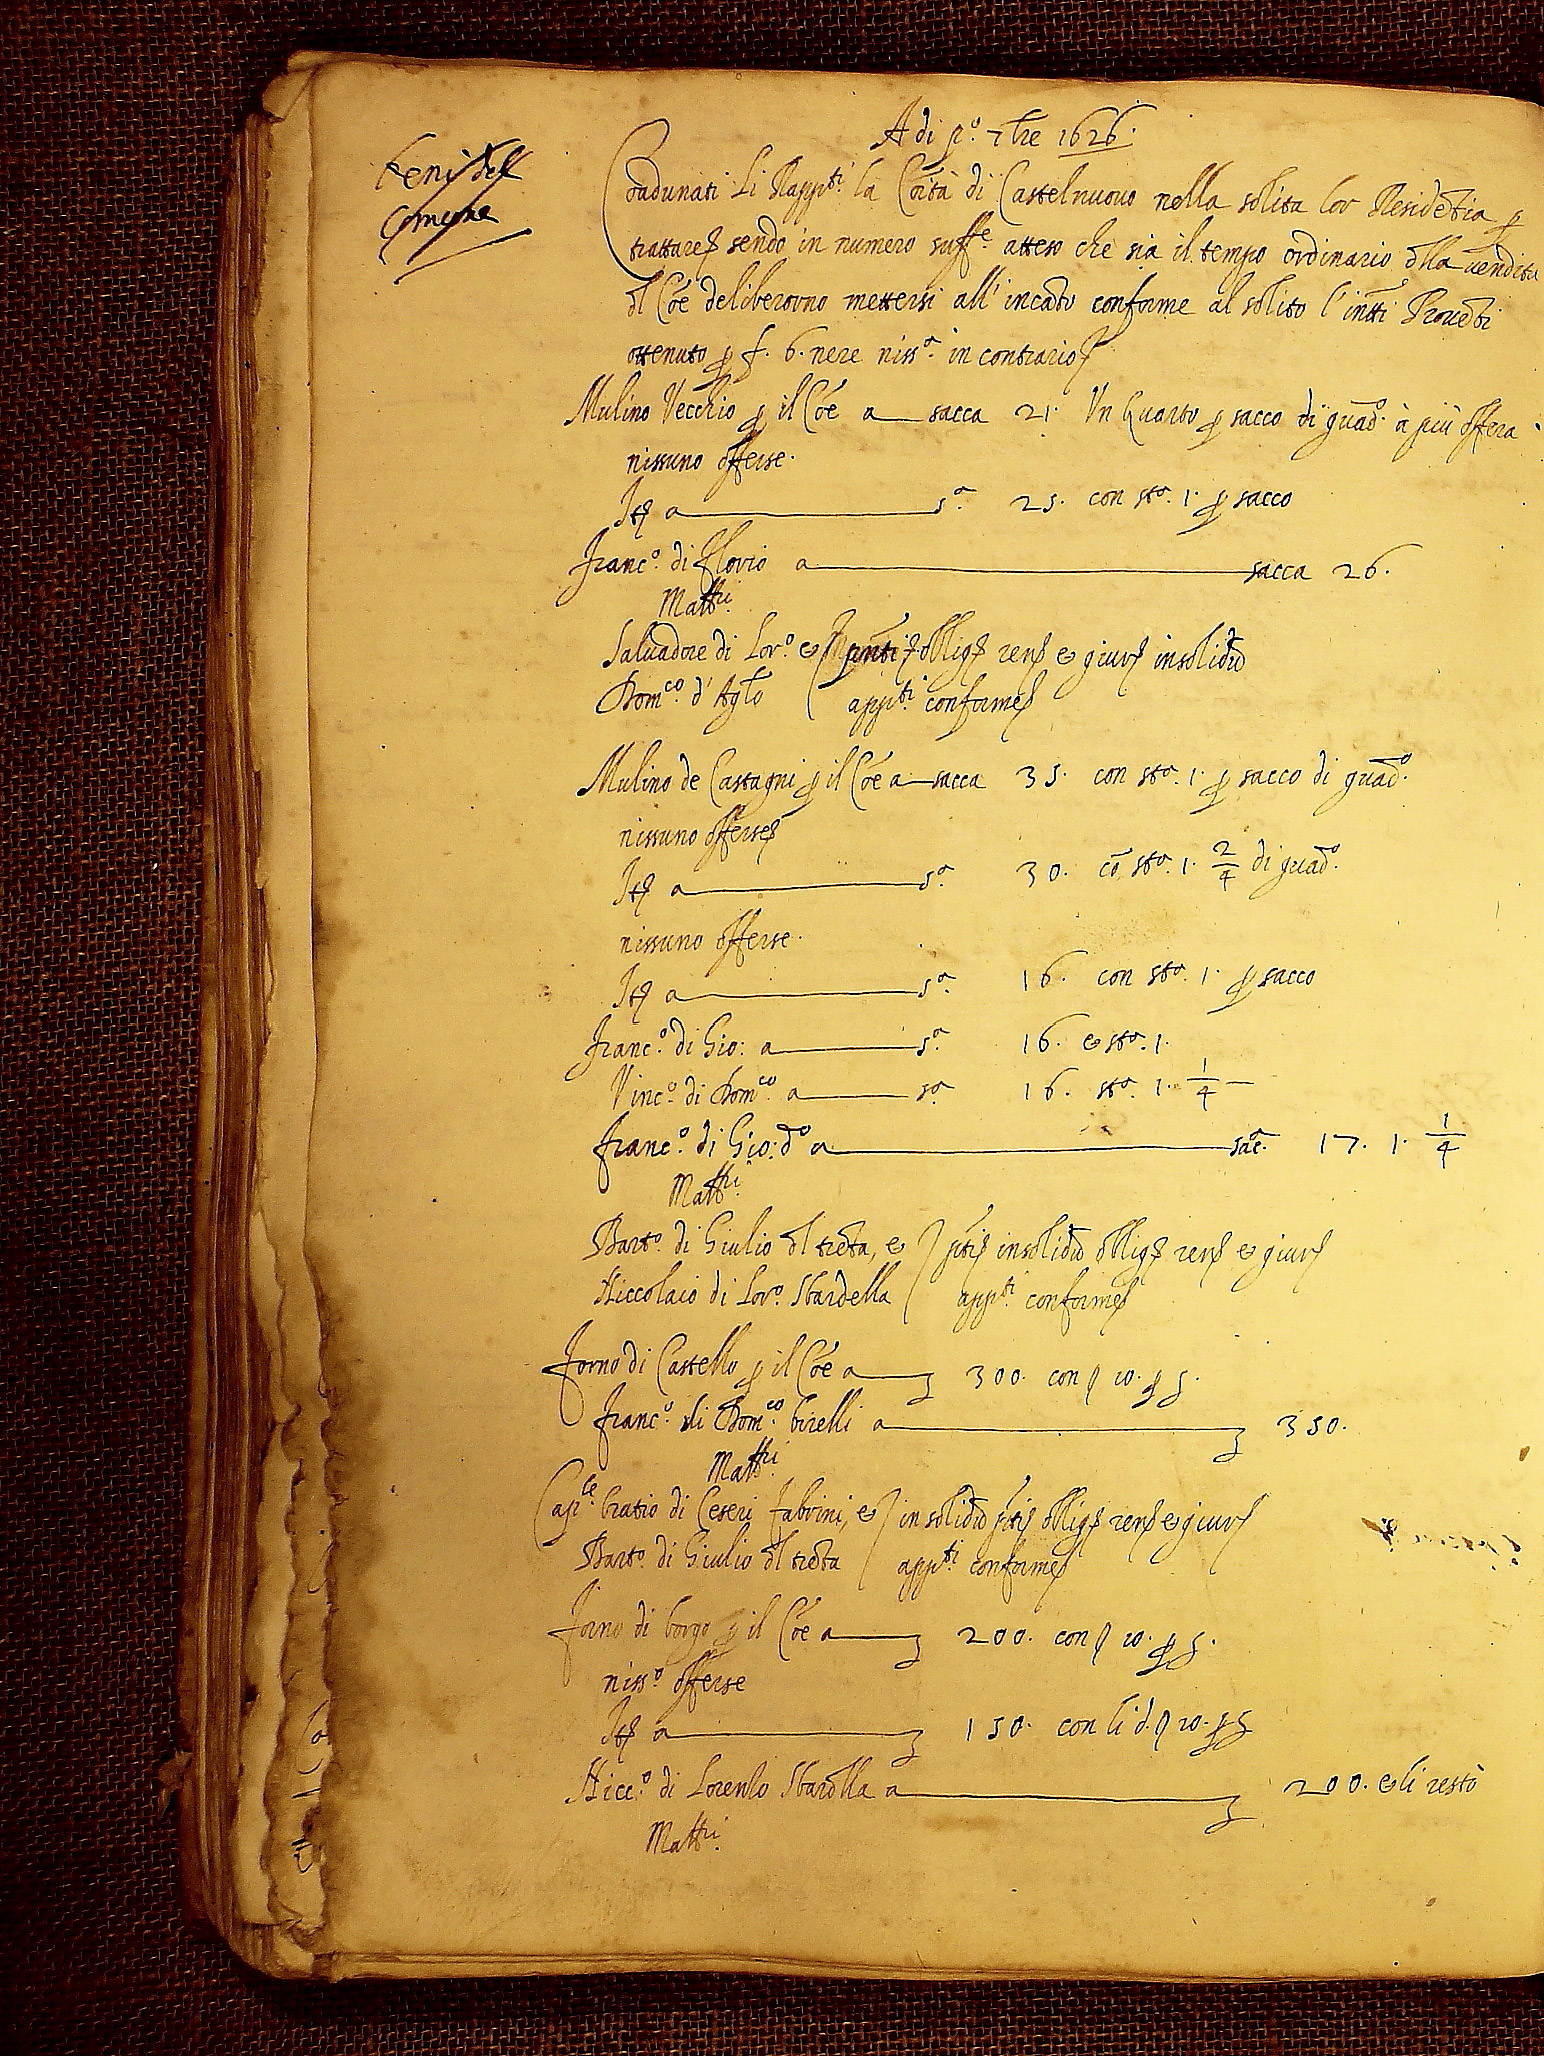 A di p.º 7bre 1626.
beni dell
Comune
Coadunati li Rapp.ti la Coītà di Castelnuovo nella solita lor Residētia p
trattare sendo in numero suff.e atteso che sia il tempo ordinario dlla vendita
dl Cōe deliberorno mettersi all'incāto conforme al solito l'intti Provēti
ottenuto p f. 6. nere niss.a in contrario
Mulino Vecchio p il Cōe a sacca 21. Un Quarto p sacco di guad.º à più offera
nissuno offerse.
Itē a s.a 25. con sta. 1. p sacco
Franc.º di Florio a sacca 26.
Matt.i
Salvadore di Lor.º e pnti oblig rens e giur insolidū
Dom.co d'Aglo app.ti conforme
Mulino de Castagni p il Cōe a sacca 35. con sta. 1. p sacco di guad.º
nissuno offerse
Itē a s.a 30. cō sta. 1. 2/4 di guad.º
nissuno offerse.
Itē a s.a 16. con sta. 1. p sacco
Franc.º di Gio: a s.a 16. e sta. 1.
Vinc.º di Dom.co a s.a 16. sta. 1. 1/4
Franc.º di Gio: d.º a sac.a 17. 1. 1/4
Matt.i
Bart.º di Giulio dl trēta, e pnti insolidū oblig rens e giur
Niccolaio di Lor.º Sbardella app.ti conforme
Forno di Castello p il Cōe a 300. con 20. p
Franc.º di Dom.co birelli a 350.
Matt.i
Cap.le Oratio di Ceseri Fabrini, e insolidū pnti oblig rens e giur
Bart.º di Giulio dl trēta app.ti conforme
Forno di borgo p il Cōe a 200. con 20. p
niss.º offerse
Itē a 150. con li d. 20. p
Nicc.º di Lorenzo Sbardlla a 200. e li restò
Matt.i